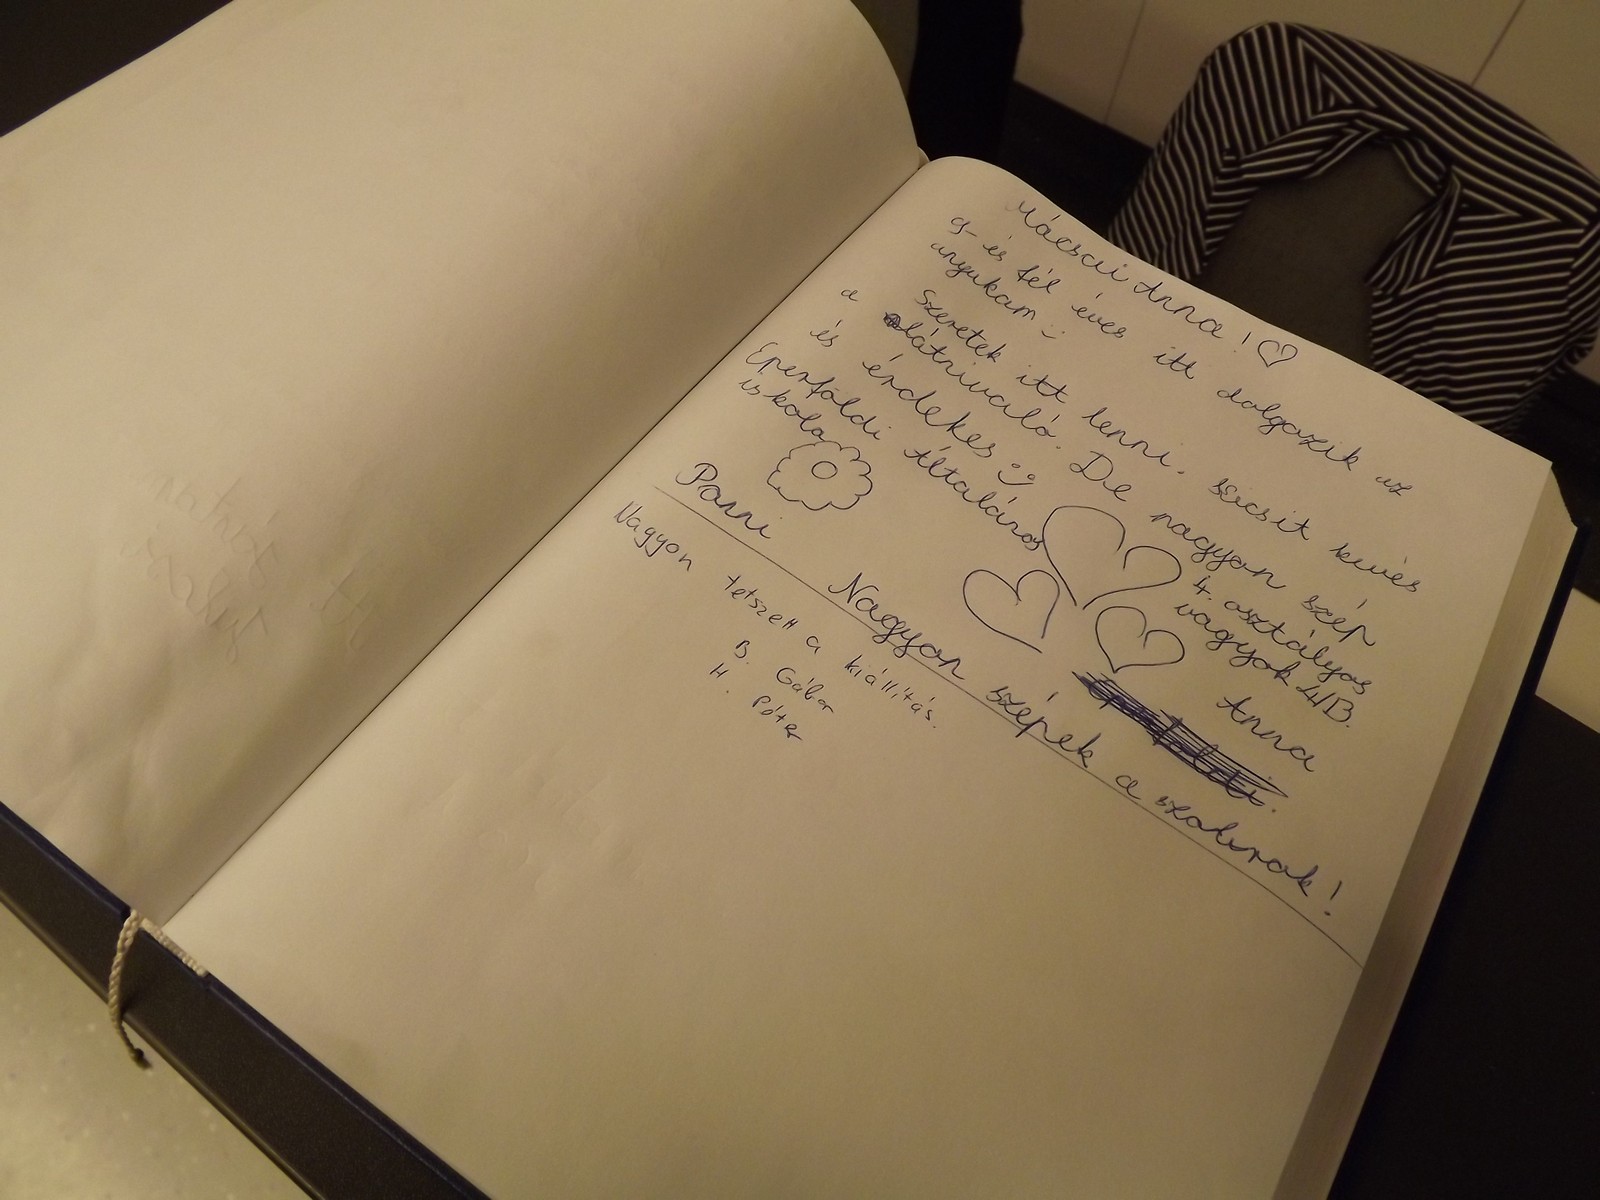 Mácsai Anna!
9-és fél éves itt dolgozik az
anyukám
Szeretek itt lenni. kicsit kevés
a látnivaló. De nagyon szép
és érdekes
Eperföldi Általános 4. osztályos
iskola vagyok 4/B.
Anna
Panni Nagyon szépek a szobrok!
Nagyon tetszett a kiállítás.
B. Gábor
H. Péter